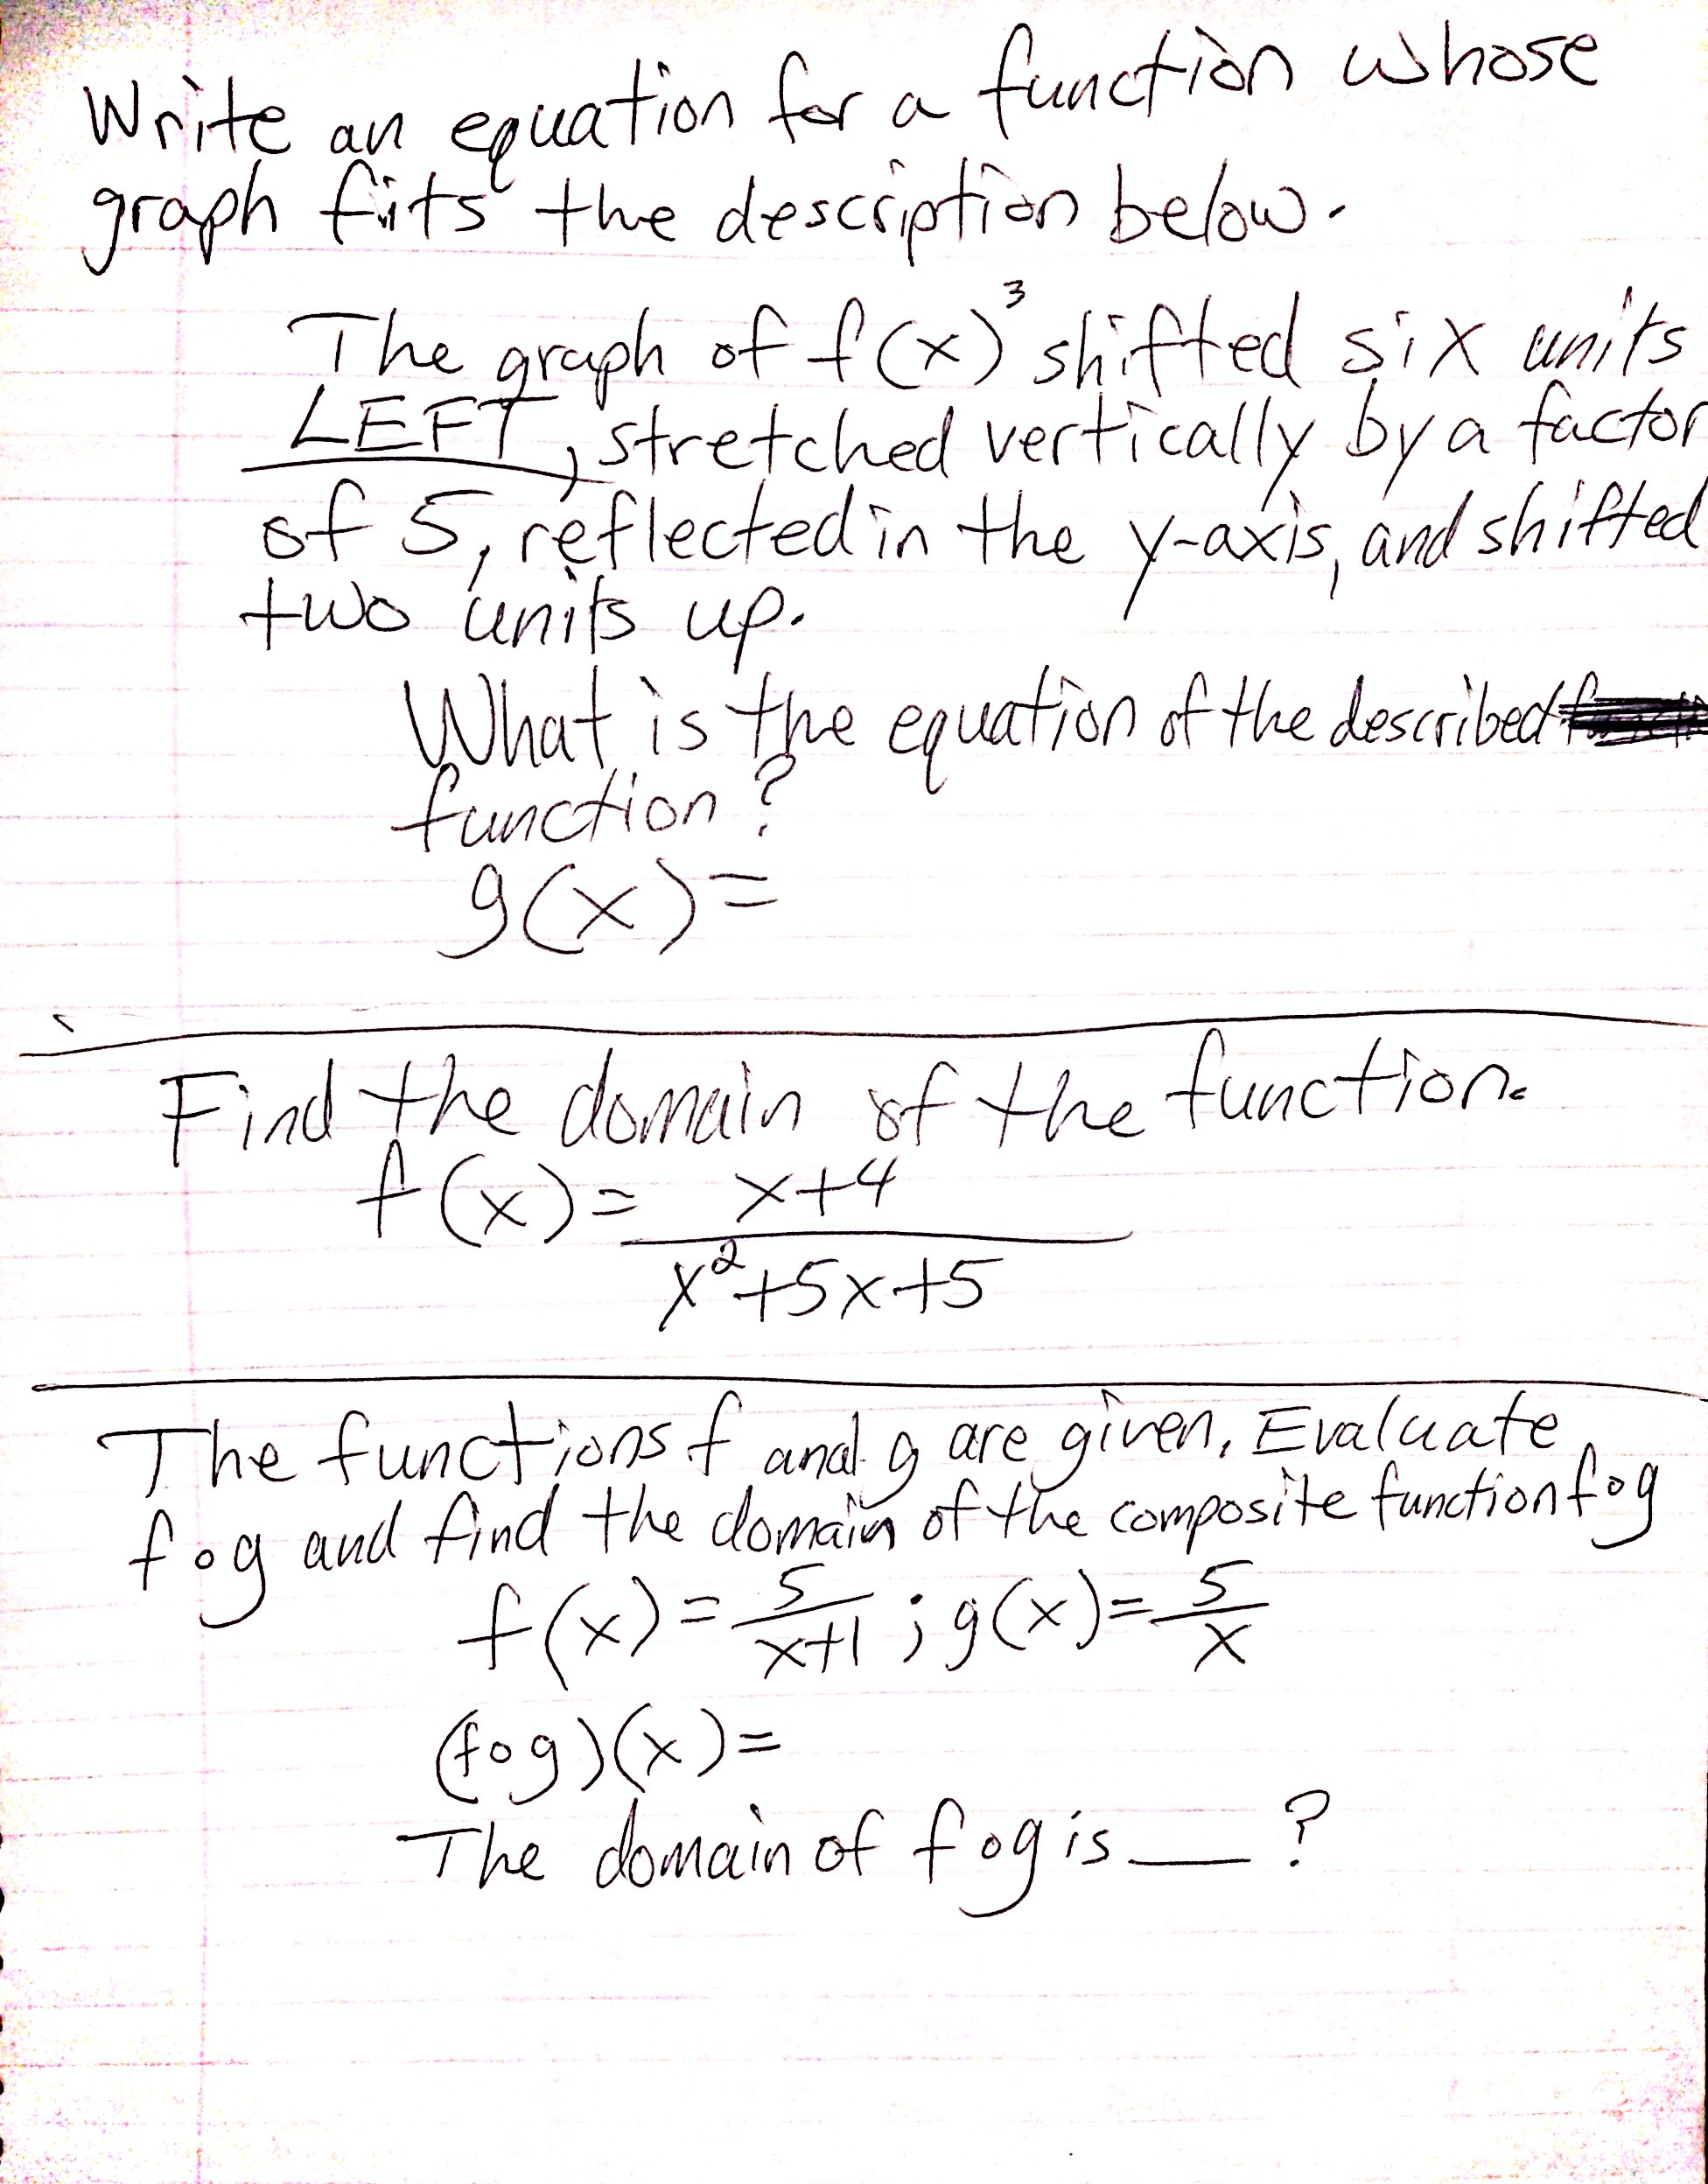 Write an equation for a function whose
graph fits the description below.
The graph of f(x)³ shifted six units
LEFT, stretched vertically by a factor
of 5, reflected in the y-axis, and shifted
two units up.
What is the equation of the described
function?
g(x)=
Find the domain of the function.
f(x)= x+4
x²+5x+5
The functions f and g are given. Evaluate
f∘g and find the domain of the composite function f∘g
f(x)= 5/x+1 ; g(x)= 5/x
(f∘g)(x)=
The domain of f∘g is ___ ?